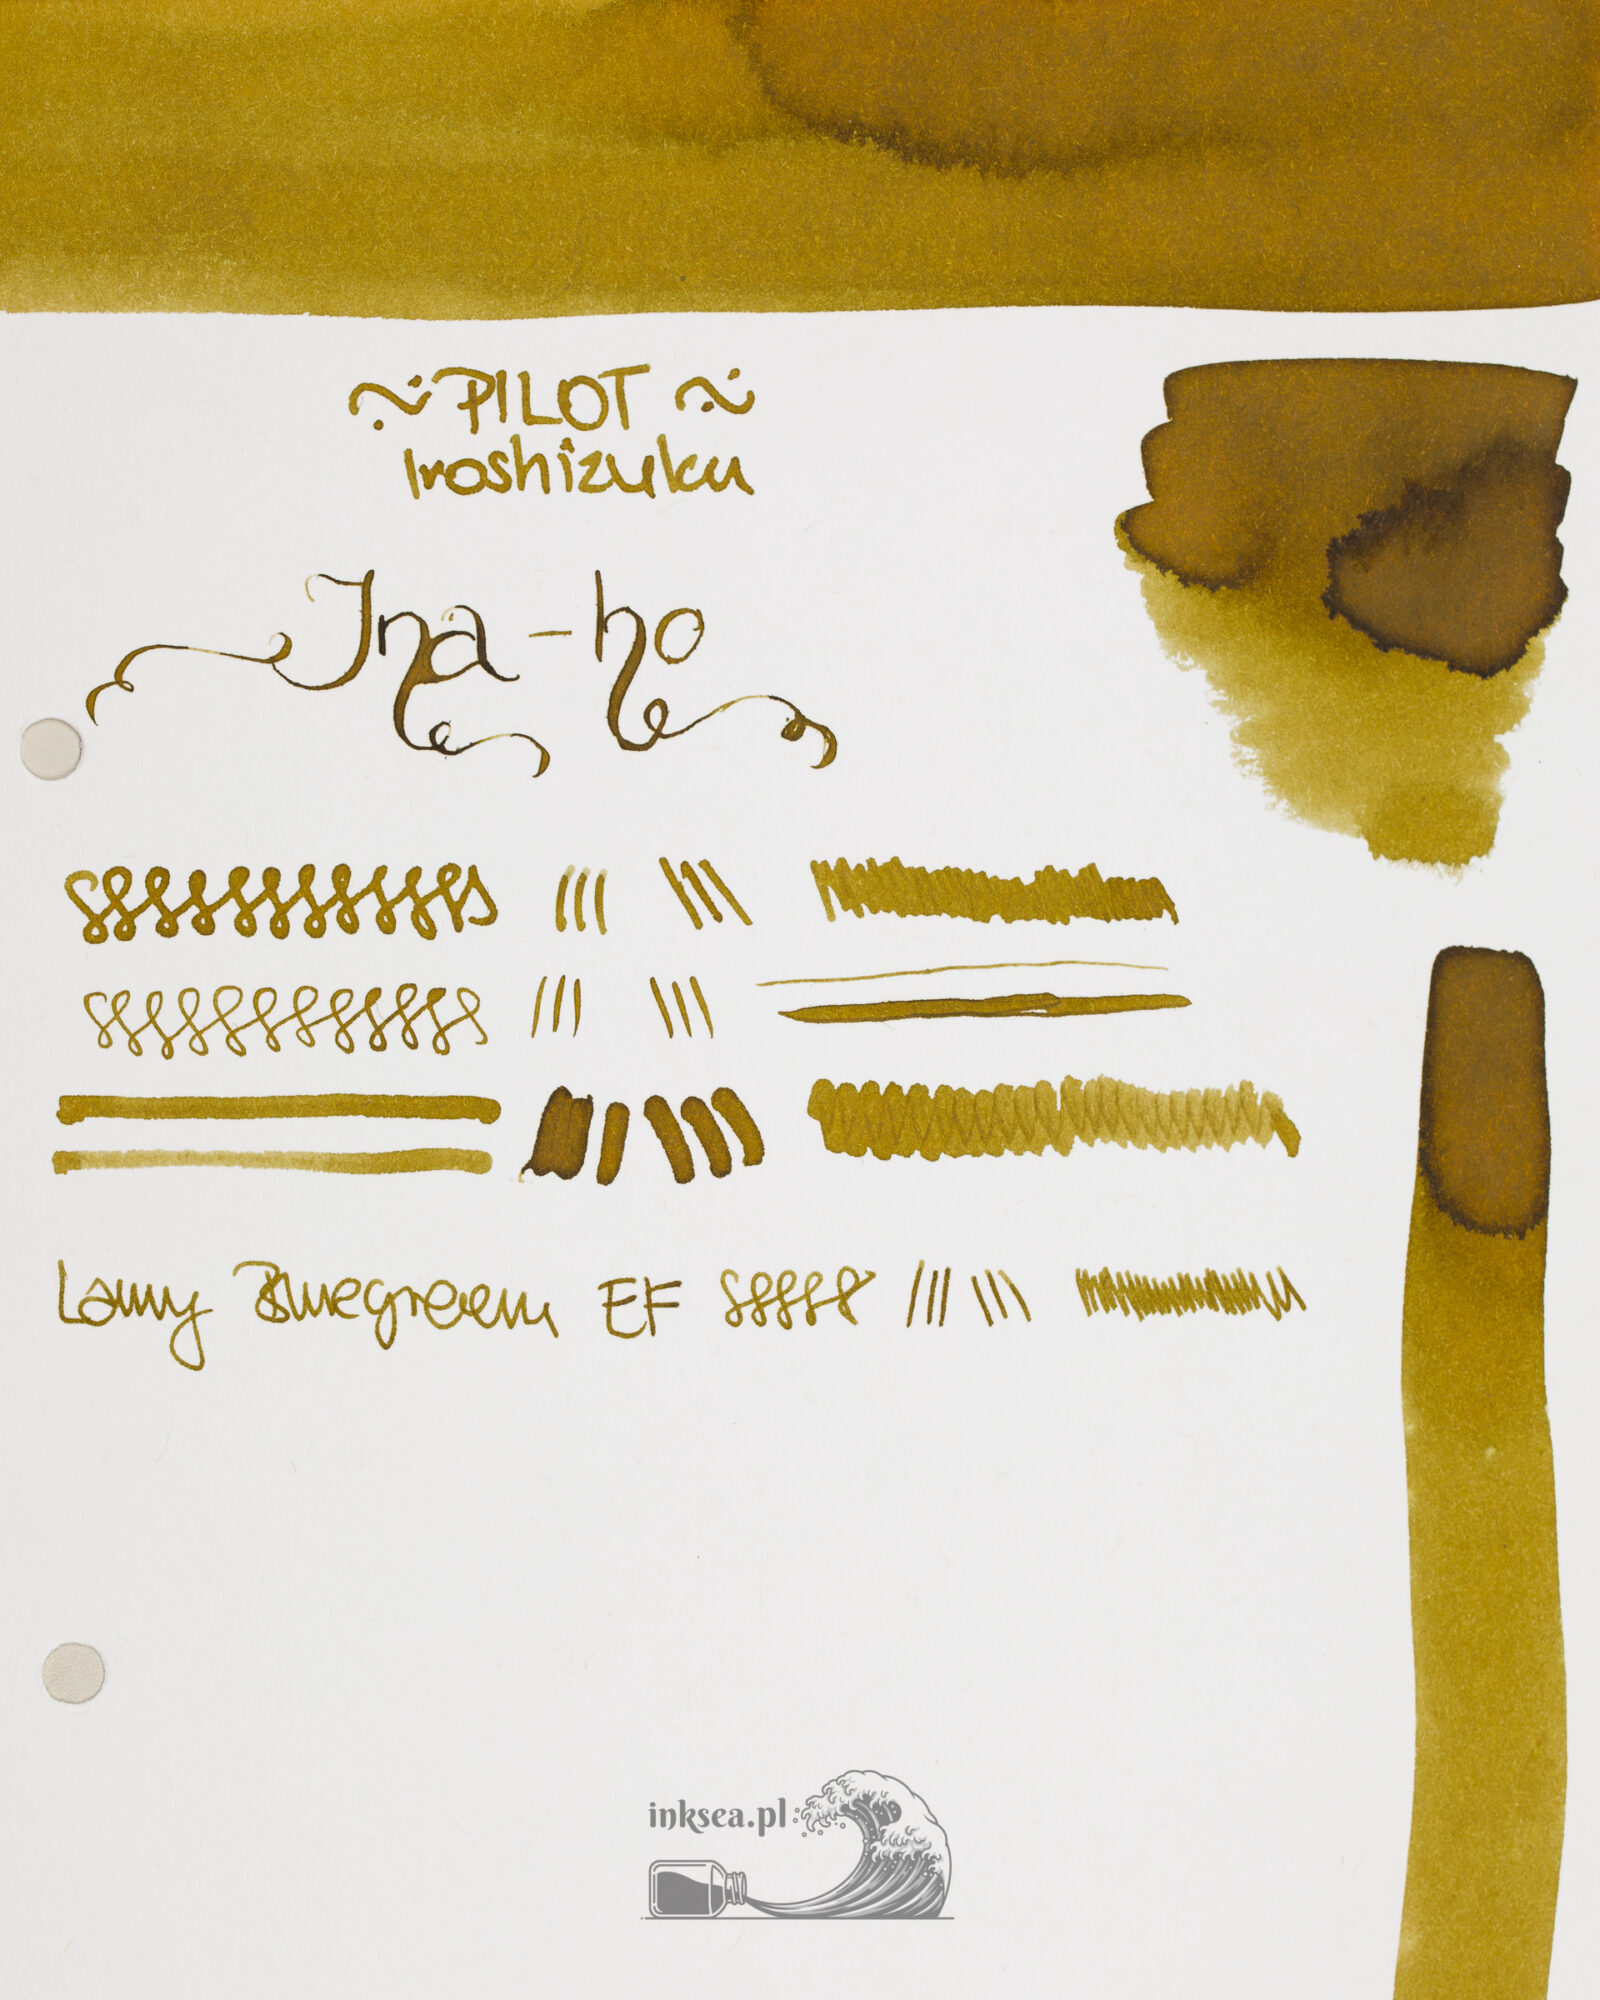 ~ PILOT ~
Iroshizuku
Ina-ho
Lamy Bluegreen EF
inksea.pl